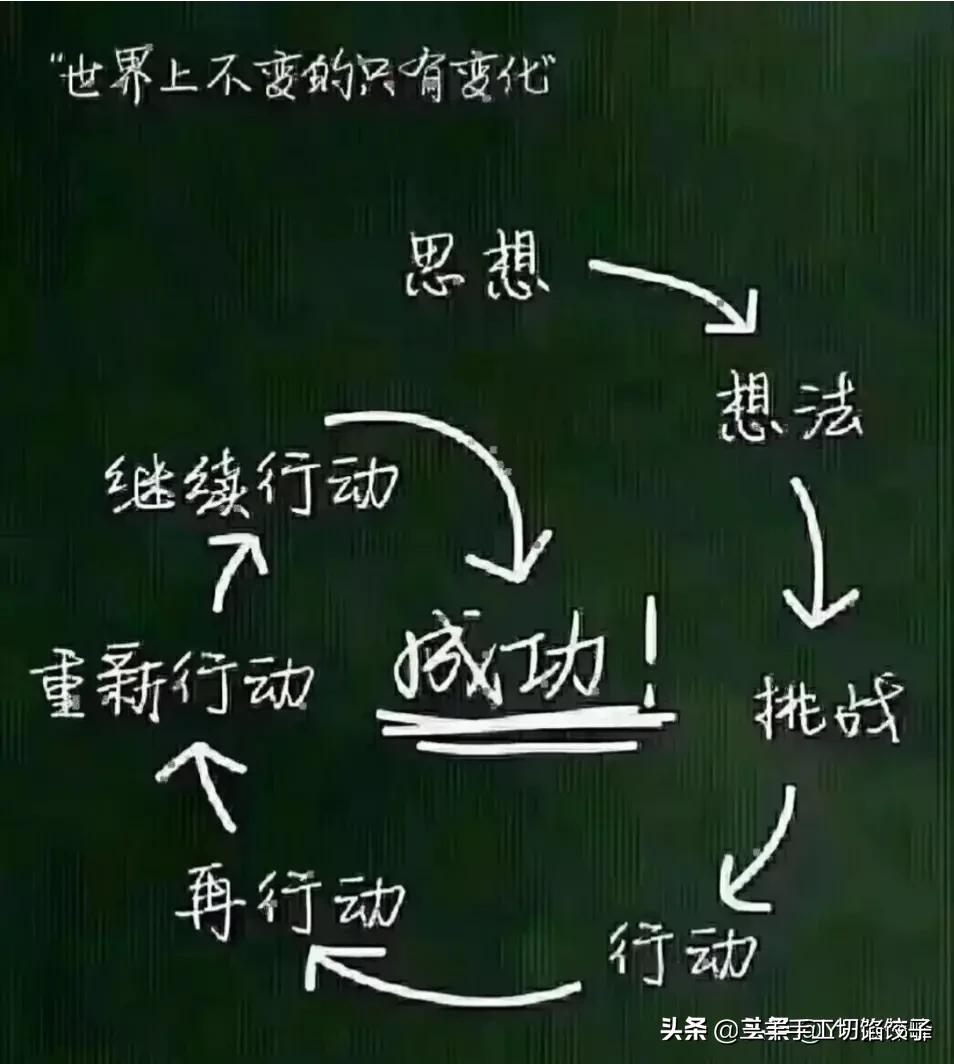 "世界上不变的只有变化"
思想
想法
挑战
行动
再行动
重新行动
继续行动
成功！
头条 @
手工切馅饺子